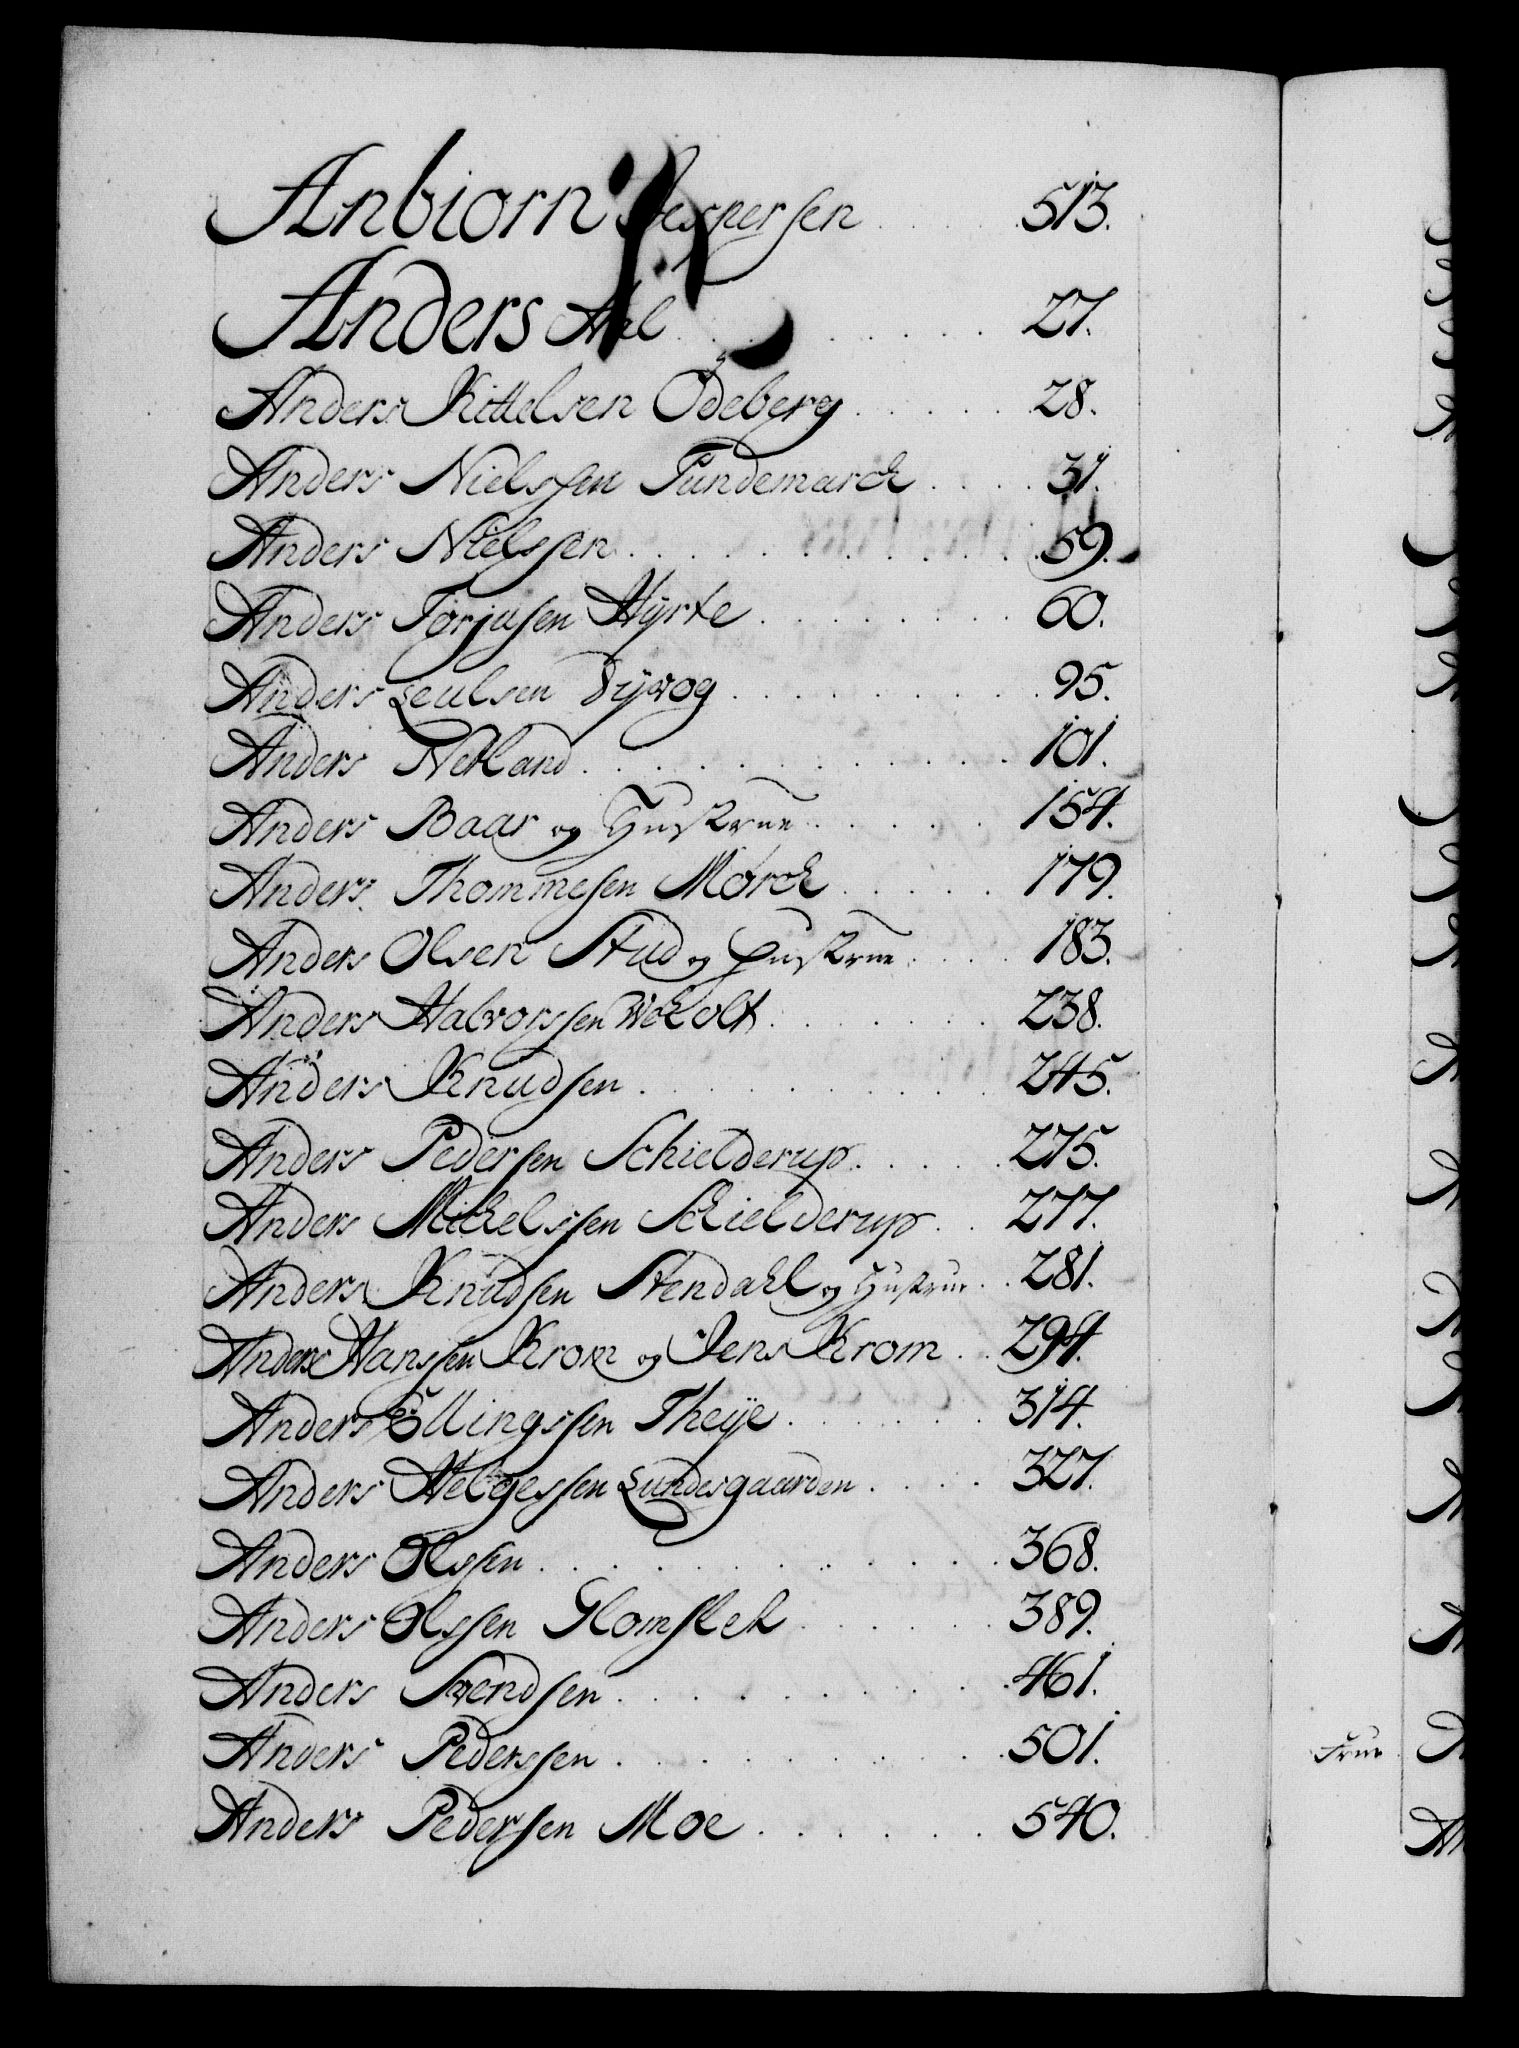 Anbiørn Jespersen . . . . . 513.
Anders Aal . . . . . . . . 27.
Anders Kittelsen Ødeberg . . . . . 28.
Anders Nielssen Tundemarck . . . . 31.
Anders Nielssen . . . . . . . . . . 59.
Anders Torjusen Hyrte . . . . . . . 60.
Anders Leulsen Dywog . . . . . . . . 95.
Anders Netland . . . . . . . . . . . 101.
Anders Baar og Hustrue . . . . . 154.
Anders Thommesen Mørck . . . . . 179.
Anders Olsen Stud og Hustrue . . . . 183.
Anders Halvorssen Wekolt . . . . . . 238.
Anders Knudsen . . . . . . . . 245.
Anders Pedersen Schielderup . . . . . 275.
Anders Mickelssen Schielderup . . 277.
Anders Knudsen Stendahl og Hustrue . . 281.
Anders Hanssen Krom og Jens Krom . . 294.
Anders Ellingssen Theÿe . . . . . . 314.
Anders Helgessen Lundesgaarden . . . . 327.
Anders Olssen . . . . . . . . . . 368.
Anders Olssen Glomslek . . . . . . 389.
Anders Svendsen . . . . . . . . . 461.
Anders Pederssen . . . . . . . . . 501.
Anders Pedersen Moe . . . . . . 540.
Frue